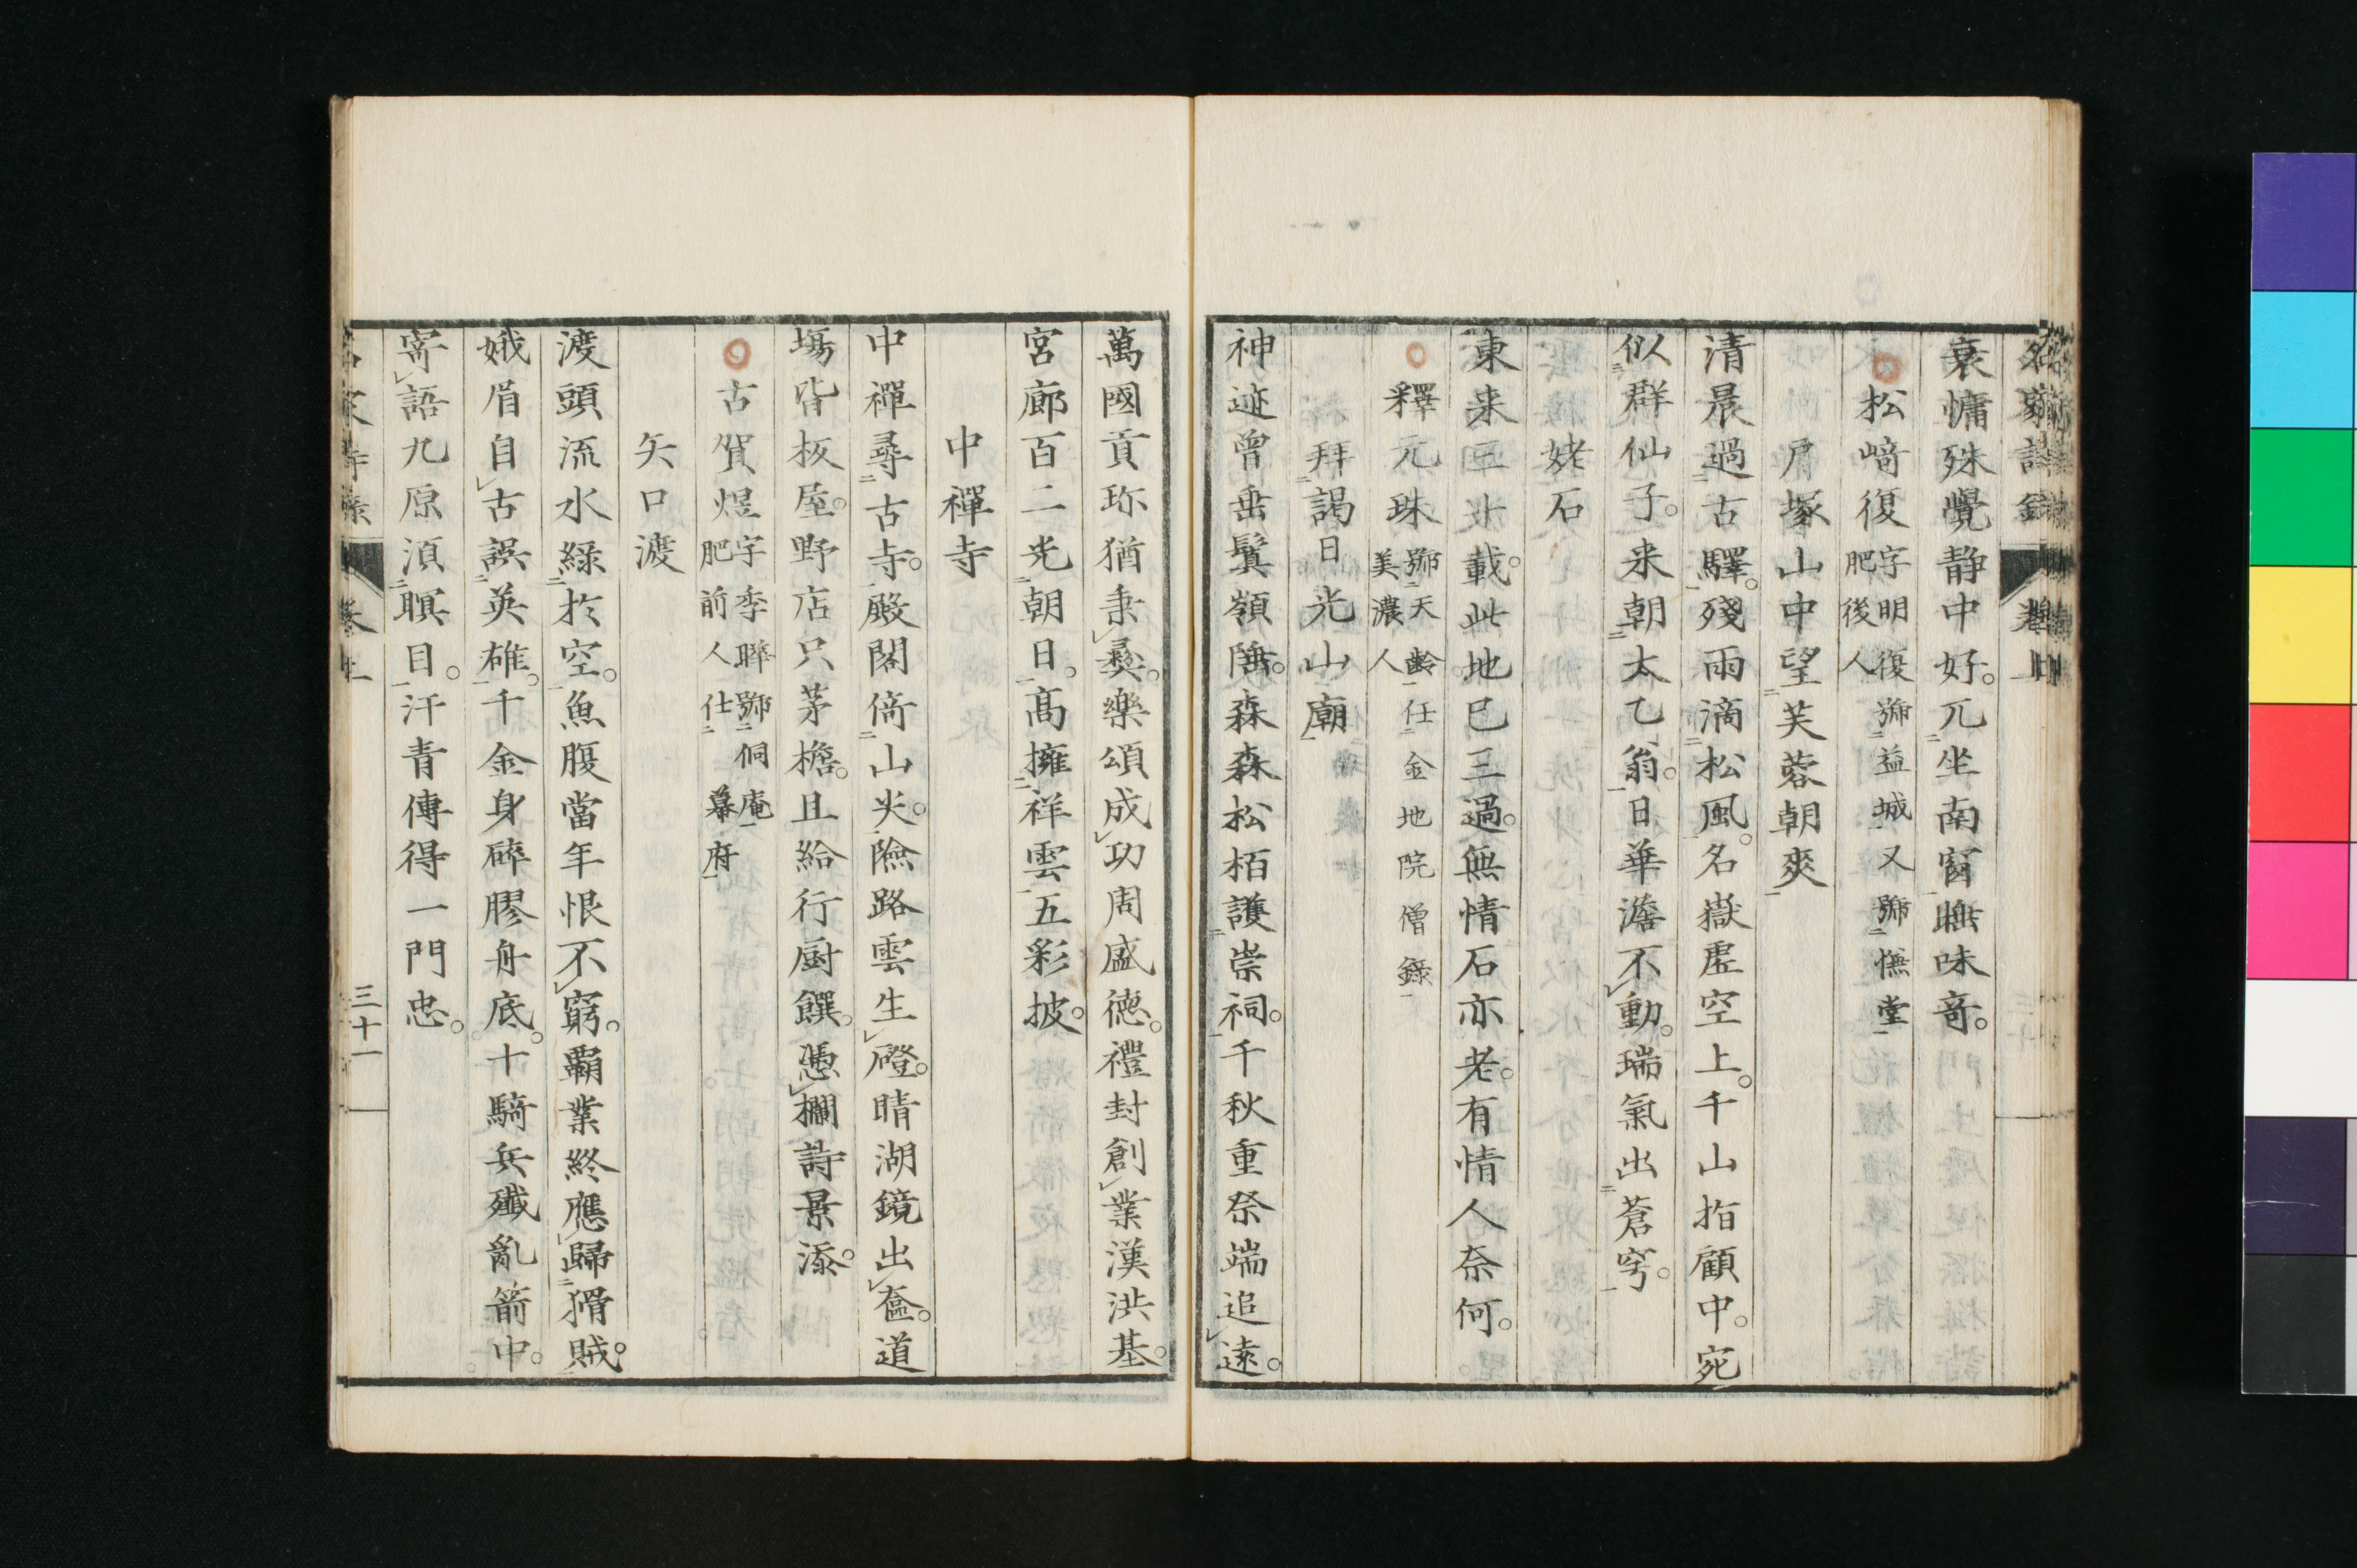 名家詩録 卷上
衰慵殊覺静中好。兀坐南窗睡味竒。
松﨑復 字明復號益城又號慊堂
肥後人
戸塚山中望芙蓉朝爽
清晨過古驛。殘雨滴松風。名嶽虚空上。千山指顧中。宛
似群仙子。来朝太乙翁。日華澹不動。瑞氣出蒼穹。
姥石
東来三十載。此地已三過。無情石亦老。有情人奈何。
釋元珠 號天齢任金地院僧録
美濃人
拜謁日光山廟
神迹曾垂鬢嶺陲。森森松栢護崇祠。千秋重祭端追遠。
萬國貢珎猶秉彛。樂頌成功周盛德。禮封創業漢洪基。
宮廊百二先朝日。高擁祥雲五彩披。
中禪寺
中禪尋古寺。殿閣倚山尖。險路雲生磴。晴湖鏡出奩。道
塲皆板屋。野店只茅檐。且給行厨饌。憑欄詩景添。
古賀煜 字季曄號侗庵
肥前人仕幕府
矢口渡
渡頭流水緑於空。魚腹當年恨不窮。覇業終應歸猾賊。
娥眉自古誤英雄。千金身碎膠舟底。十騎兵殲亂箭中。
寄語九原湏瞑目。汗青傳得一門忠。
名家詩録 卷上 三十一